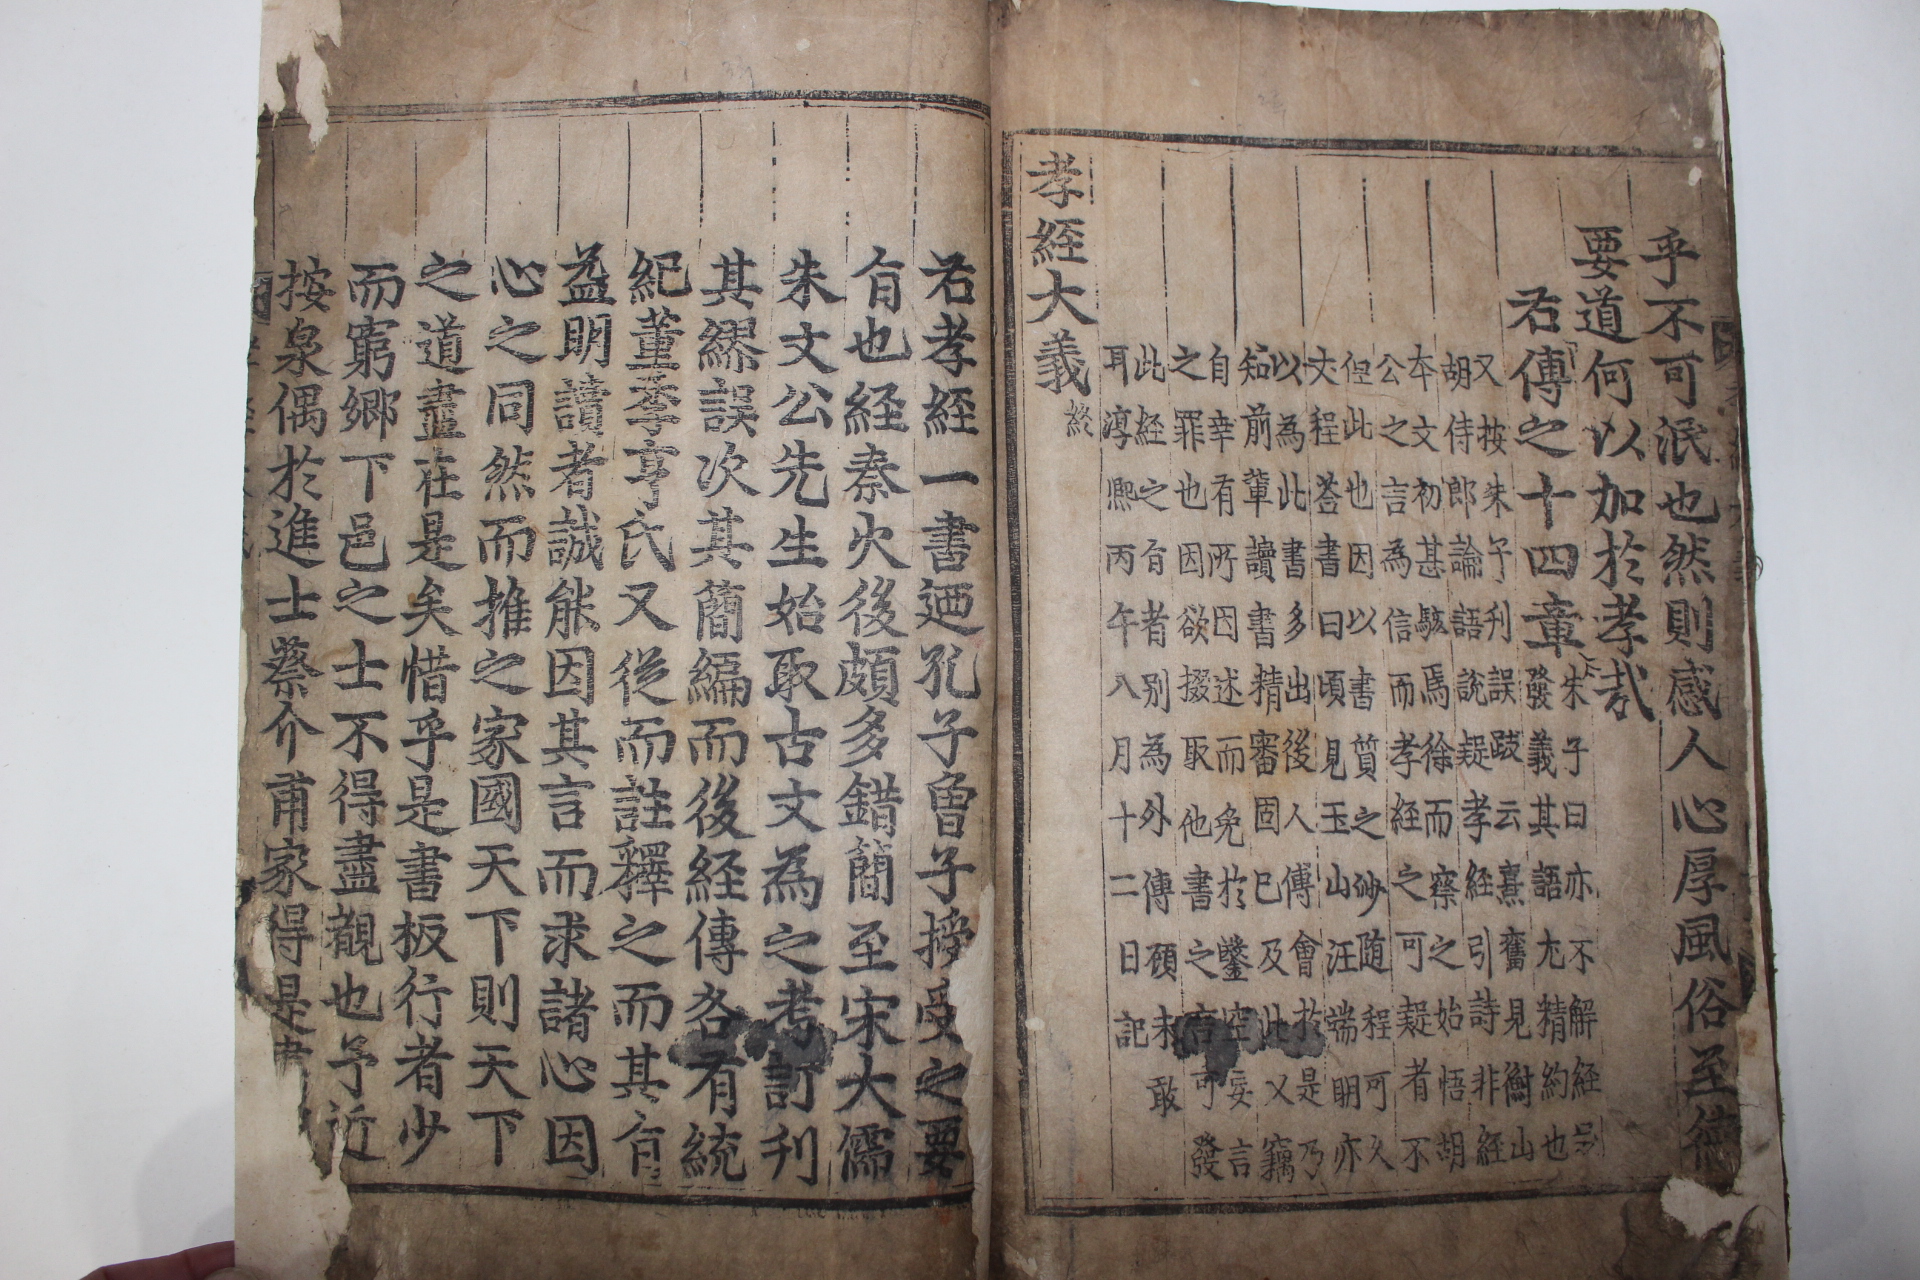 乎不可泯也然則感人心厚風俗至德
要道何以加於孝哉
右傳之十四章
朱子曰亦不解經
發義其語尤精約也
又按朱子刊誤跋云熹舊見衡山
胡侍郎論語說疑孝經引詩非經
本文初甚駭焉徐而察之始悟胡
公之言為信而孝經之可疑者不
但此也因以書質之沙随程可久
丈程荅書曰頃見玉山汪端明亦
以為此書多出後人傅會於是乃
知前輩讀書精審固已及此又竊
自幸有所因述而免於鑿空妄言
之罪也因欲掇取他書之言可發
此經之旨者別為外傳顧未敢
耳淳熙丙午八月十二日記
孝經大義 終
右孝經一書迺孔子曾子授受之要
旨也經秦火後頗多錯簡至宋大儒
朱文公先生始取古文為之考訂刊
其繆誤次其簡編而後經傳各有統
紀董季亨氏又從而註釋之而其旨
益明讀者誠能因其言而求諸心因
心之同然而推之家國天下則天下
之道盡在是矣惜乎是書板行者少
而窮鄉下邑之士不得盡覩也予近
按泉偶於進士蔡介甫家得是書